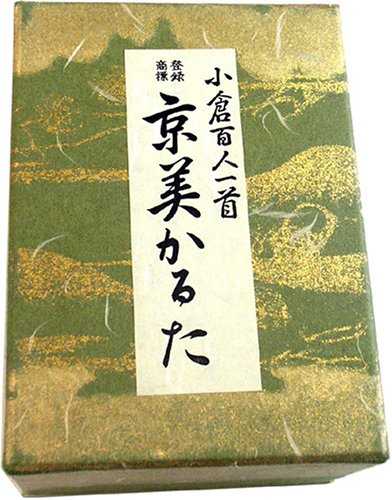 小倉百人一首
登録
商標
京美かるた